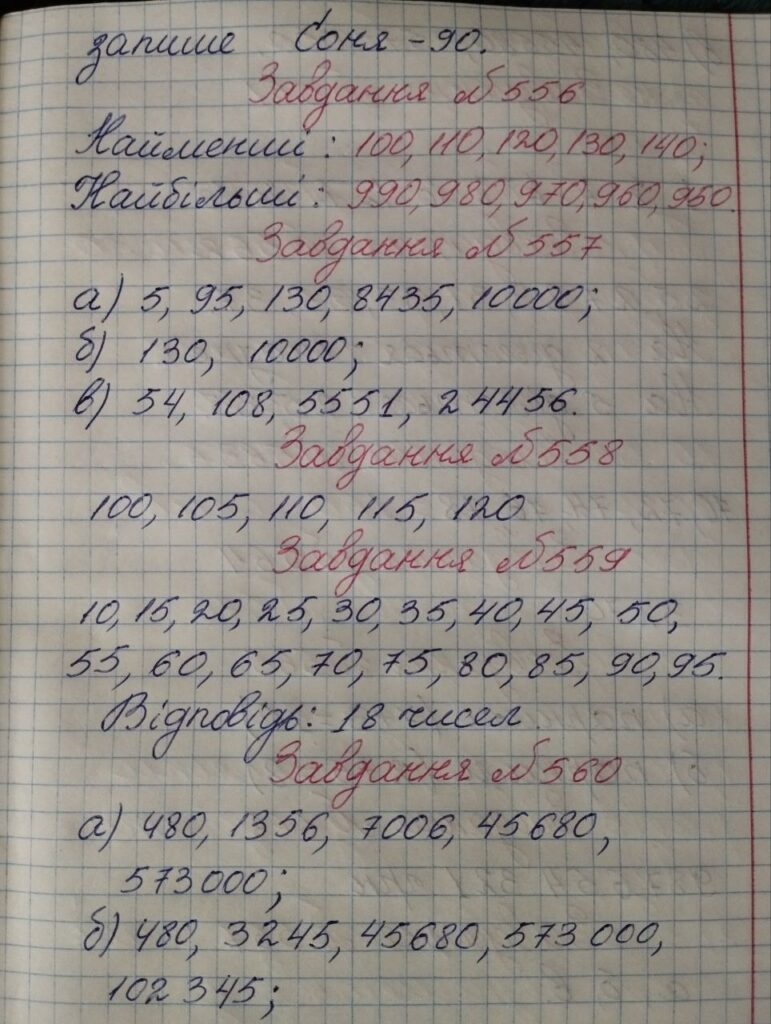 запише Соня - 90.
Завдання №556
Найменші: 100, 110, 120, 130, 140;
Найбільші: 990, 980, 970, 960, 950.
Завдання №557
а) 5, 95, 130, 8435, 10000;
б) 130, 10000;
в) 54, 108, 5551, 24456.
Завдання №558
100, 105, 110, 115, 120
Завдання №559
10, 15, 20, 25, 30, 35, 40, 45, 50,
55, 60, 65, 70, 75, 80, 85, 90, 95.
Відповідь: 18 чисел.
Завдання №560
а) 480, 1356, 7006, 45680,
573000;
б) 480, 3245, 45680, 573 000,
102 345;